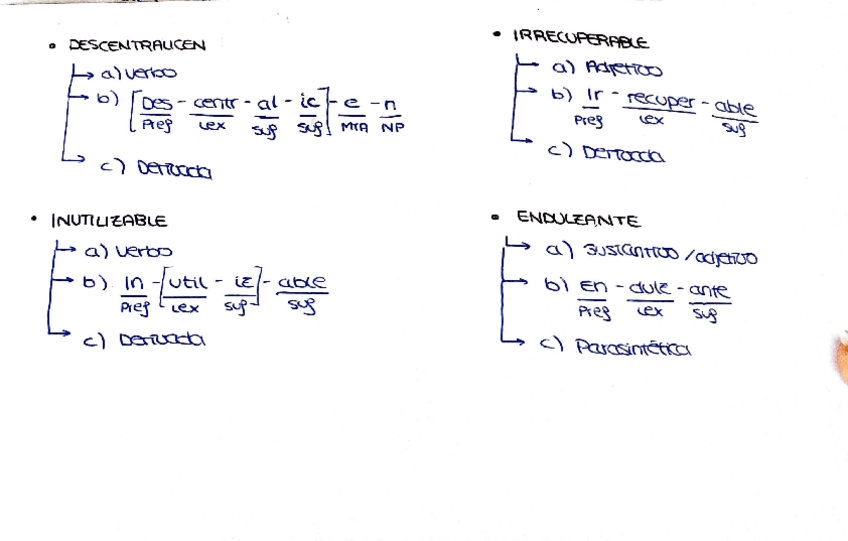 • DESCENTRALICEN
a) Verbo
b) [Des - centr - al - ic] - e - n
Pref Lex Suf Suf MTA NP
c) Derivada
• IRRECUPERABLE
a) Adjetivo
b) Ir - recuper - able
Pref Lex Suf
c) Derivada
• INUTILIZABLE
a) Verbo
b) In - [util - iz] - able
Pref Lex Suf Suf
c) Derivada
• ENDULZANTE
a) Sustantivo / adjetivo
b) En - dulz - ante
Pref Lex Suf
c) Parasintética